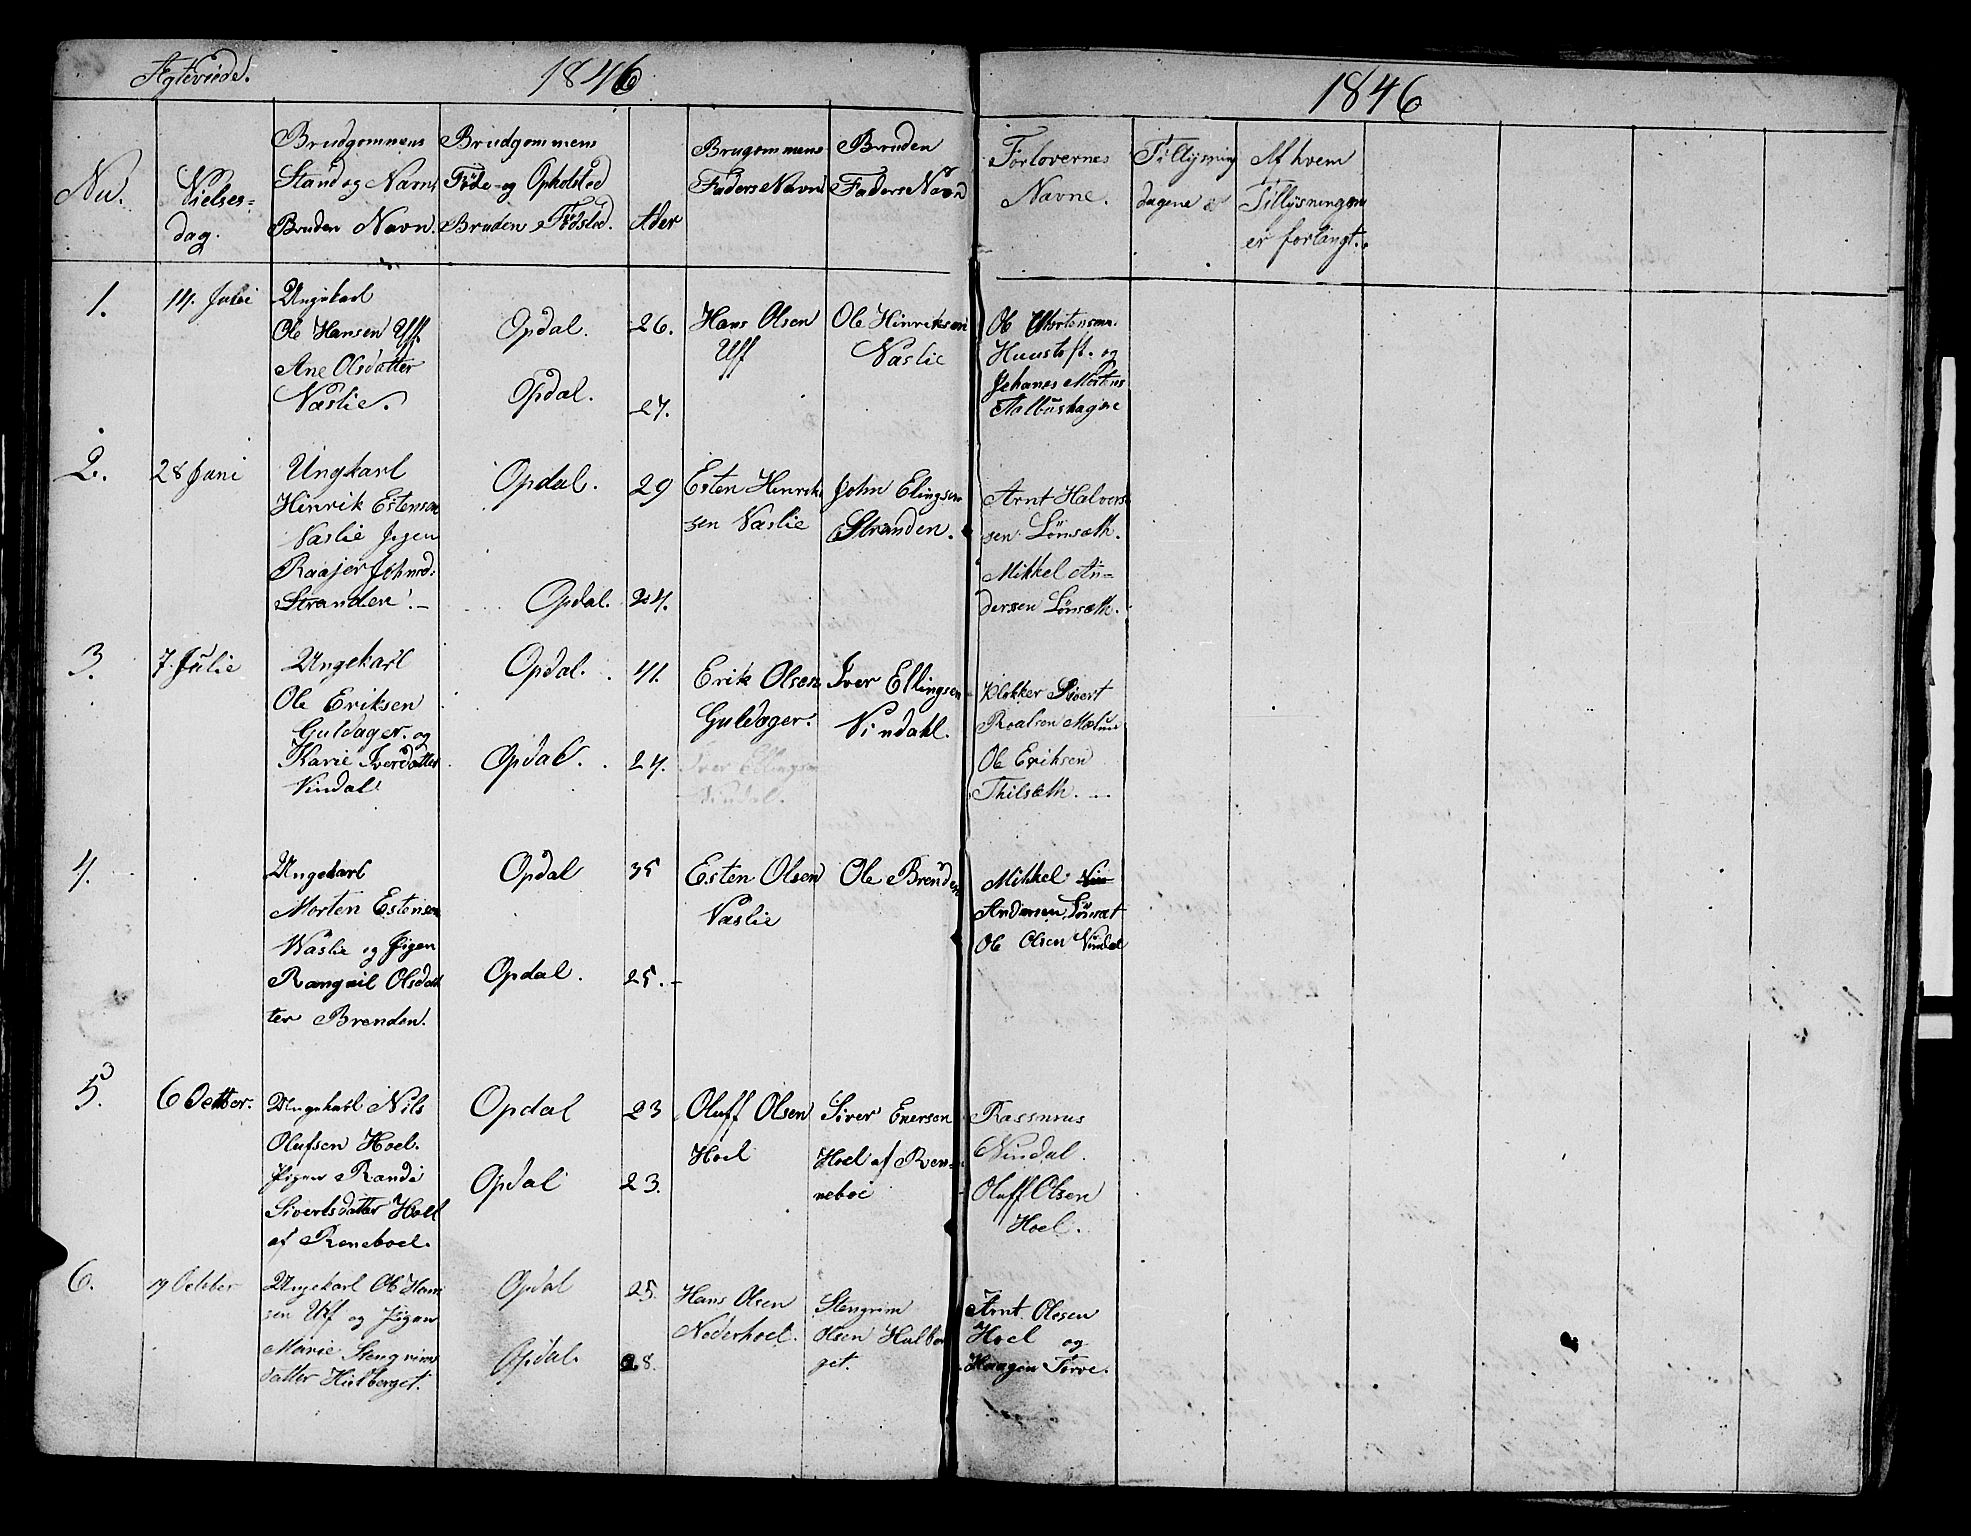 Ægteviede. 1846 1846
No.
Vielses-
dag.
Brudgommens
Stand og Navn,
Bruden Navn.
Brudgommens
Føde- og Opholsted
Bruden Fødsted.
Alder
Brugommens
Faders Navn
Bruden
Faders Navn
Forlovernes
Navne.
Tillysning
dagene
Af hvem
Tillysningen
er forlangt.
1.
14. Julii
Ungekarl
Ole Hansen Uff
Ane Olsdatter
Næslie.
Opdal.
Opdal.
26.
27.
Hans Olsen
Uff
Ole Hinriksen
Næslie
Ole Mortensen
Huustoft. og
Johanes Mortens
Aalbushagene
2.
28 Juni
Ungkarl
Hinrik Estensen
Næslie Pigen
Raajer Johnsd:
Stranden. –
Opdal.
Opdal.
29
24.
Esten Henrik
sen Næslie
John Elingsen
Stranden.
Arnt Halvor
sen Lønsæth.
Mikkel An-
dersen Lønsæth.
3.
7. Julie
Ungekarl
Ole Eriksen
Guldager. og
Karie Iverdatter
Vindal
Opdal.
Opdal.
41.
24.
Erik Olsen
Guldager.
Iver Ellingsen
Vindal.
Iver Ellingsen
Vindahl.
Klokker Sivert
Roalsen
Ole Eriksen
Thilsæth. –
4.
Ungekarl
Morten Estensen
Wæslie og Pigen
Rangnil Olsdat
ter Brenden.
Opdal
Opdal.
35
25. –
Esten Olsen
Næslie
Ole Brenden
Mikkel
Andersen Lønsæt
Ole Olsen Vindal
5.
6 Octber.
Ungekarl Nils
Olufsen Hoel.
Pigen Randi
Sivertsdatter Hoel
af Reneboel.
Opdal
Opdal
23
23.
Oluff Olsen
Hoel
Siver Enersen
Hoel af Ren-
neboe
Rassmus
Vindal.
Oluff Olsen
Hoel.
6.
19 Octber
Ungekarl Ole Han
sen Uf og Pigen
Marie Stengrims
datter Hulberget.
Opdal
Opdal.
25.
28.
Hans Olsen
Nederhoel.
Stengrim
Olsen Hulber
get.
Arnt Olesen
Hoel og
Haagen Torve.